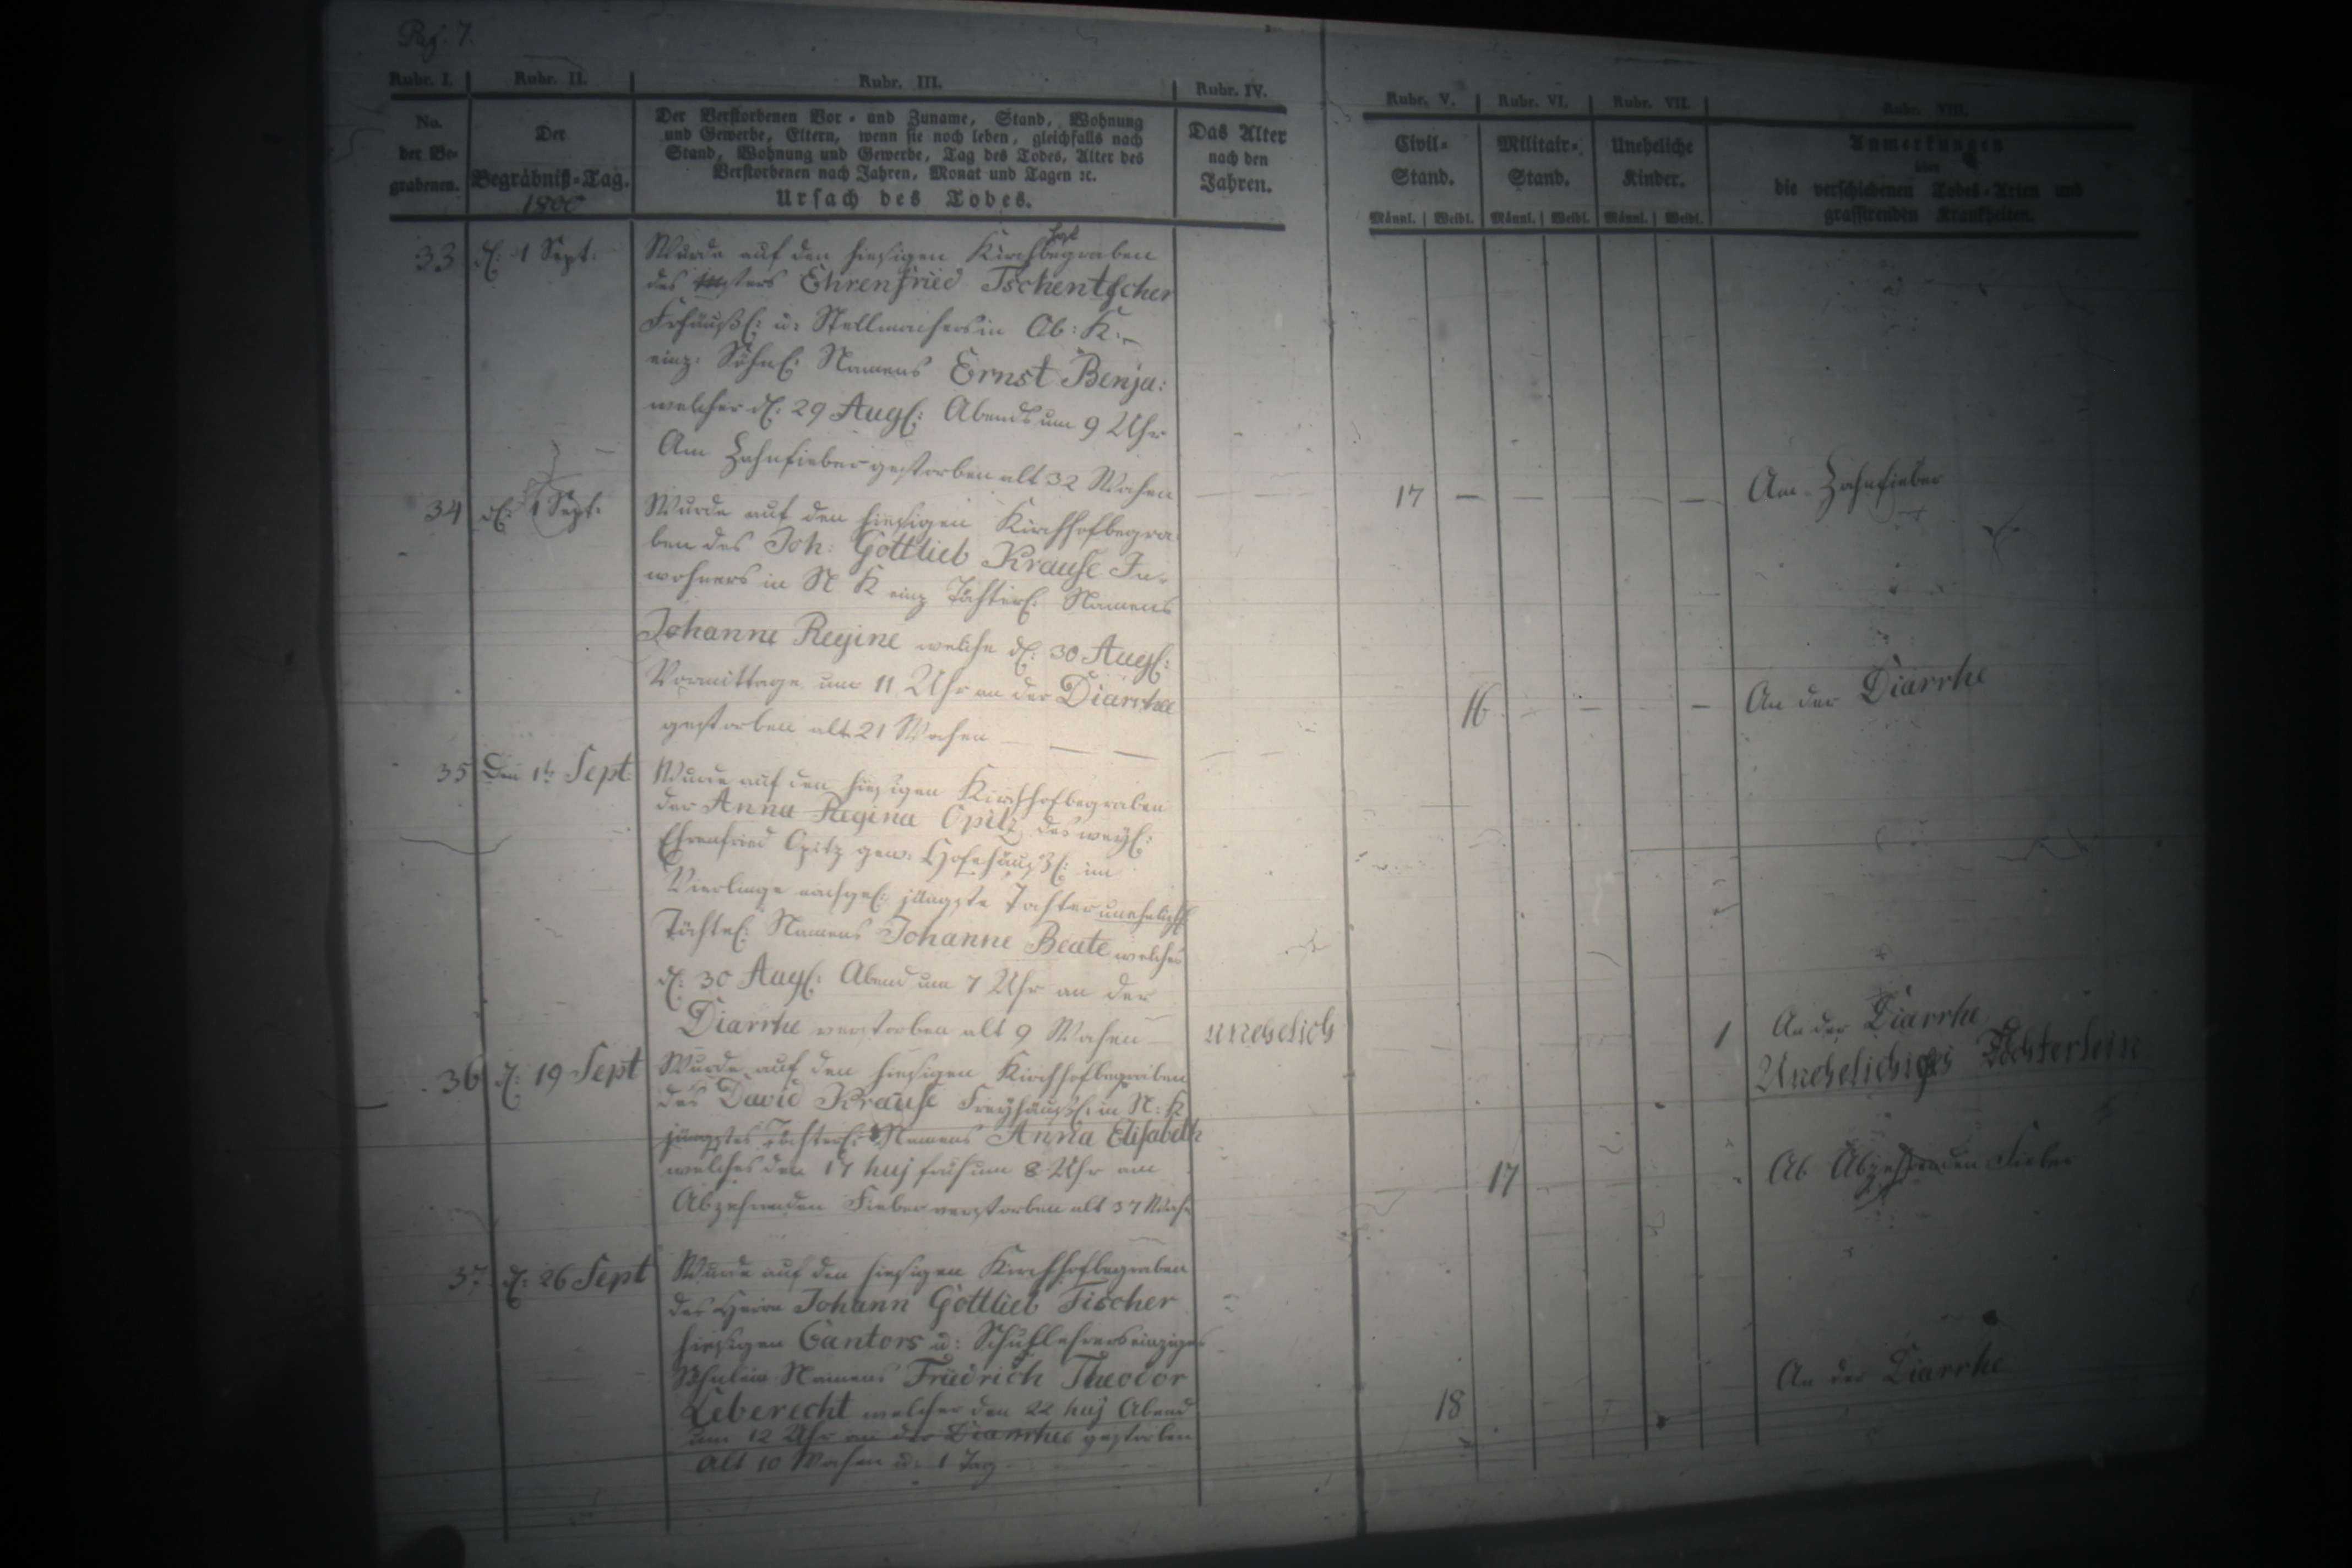 Pag. 7.
Rubr. I. Rubr. II. Rubr. III. Rubr. IV. Rubr. V. Rubr. VI. Rubr. VII. Rubr. VIII.
No. der Be-grabenen.
Der Begräbniß-Tag.
1800
Der Verstorbenen Vor- und Zuname, Stand, Wohnung
und Gewerbe, Eltern, wenn sie noch leben, gleichfalls nach
Stand, Wohnung und Gewerbe, Tag des Todes, Alter des
Verstorbenen nach Jahren, Monat und Tagen ꝛc.
Ursach des Todes.
Das Alter
nach den
Jahren.
Civil-
Stand.
Militair-
Stand.
Uneheliche
Kinder.
Männl. Weibl. Männl. Weibl. Männl. Weibl.
Anmerkungen
über
die verschiedenen Todes-Arten und
grassirenden Krankheiten.
33 d: 1 Sept:
Wurde auf den hiesigen Kirchhofbegraben
des Ehrenfried Tschentscher
Frhäußl: u: Stellmachers in Ob: K.
einz: Söhnl: Namens Ernst Benja:
welcher d: 29 Augl: Abends um 9 Uhr
Am Zahnfieber gestorben alt 32 Wochen
17 — — — Am Zahnfieber
34 d: 1 Sept:
Wurde auf den hiesigen Kirchhofbegra
ben des Joh: Gottlieb Krause In-
wohners in N K einz Töchterl: Namens
Johanne Regine welche d: 30 Augl:
Vormittage um 11 Uhr an der Diarrhee
gestorben alt 21 Wochen
16 — — An der Diarrhe
35 Den 1t Sept:
Wurde auf den hiesigen Kirchhofbegraben
der Anna Regina Opitz, des weyl:
Ehrenfried Opitz gew: Hofehäußl: im
Vierlinge nachgel: jüngste Tochter unehelich
Töchterl: Namens Johanne Beate welches
d: 30 Augl: Abend um 7 Uhr an der
Diarrhe verstorben alt 9 Wochen —
unehelich
1 An der Diarrhe
Uneheliches Töchterlein
36 d: 19 Sept
Wurde auf den hiesigen Kirchhofbegraben
des David Krause Freyhäußl: in N: K
jüngstes Töchterl: Namens Anna Elisabeth
welches den 17 huj früh um 8 Uhr am
Abzehrenden Fieber verstorben alt 37 Woch
17 Ab Abzehrenden Fieber
37 d: 26 Sept
Wurde auf den hiesigen Kirchhofbegraben
des Herrn Johann Gottlieb Fischer
hiesigen Cantors u: Schullehrers einziges
Söhnlein Namens Friedrich Theodor
Leberecht welcher den 22 huj Abend
um 12 Uhr an der Diarrhee gestorben
alt 10 Wochen u: 1 Tag
18 An der Diarrhe